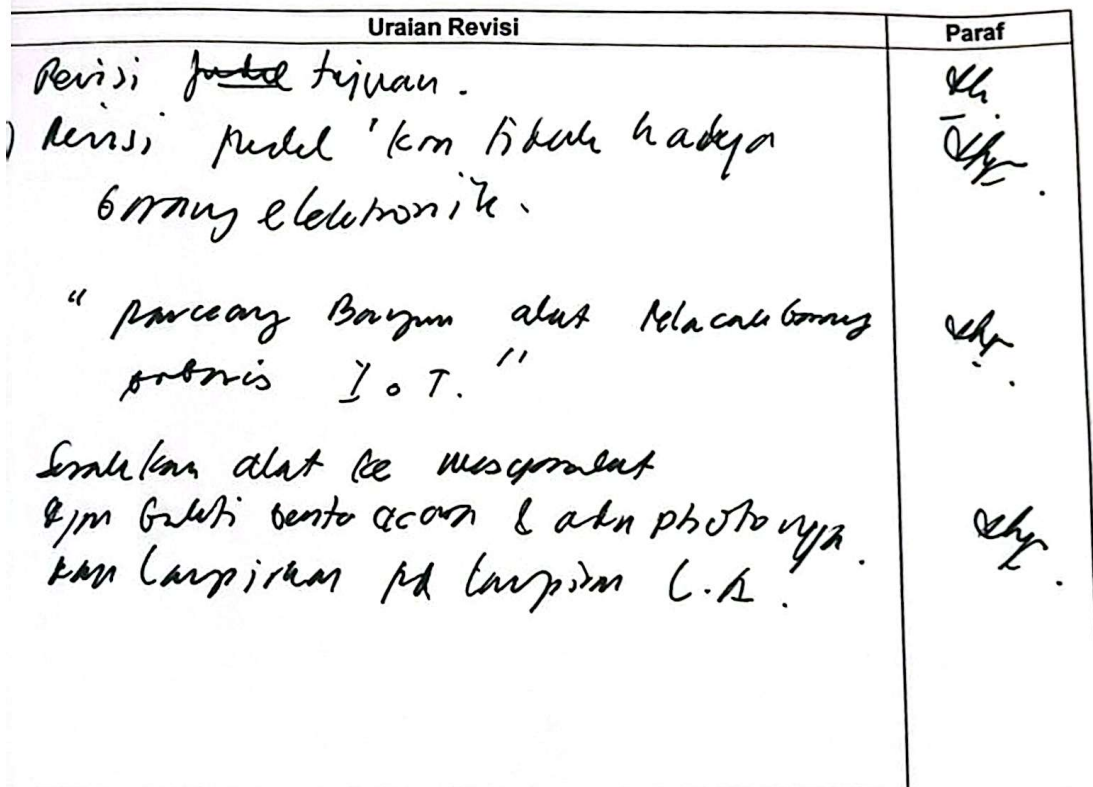 Uraian Revisi Paraf
Revisi judul tujuan.
) Revisi judul 'krn tidak hanya
barang elektronik.
" Rancang Bangun alat Pelacak barang
berbasis I o T."
Serahkan alat ke masyarakat
dgn bukti berita acara & ada photo nya.
dan lampirkan pd lampiran L.A.